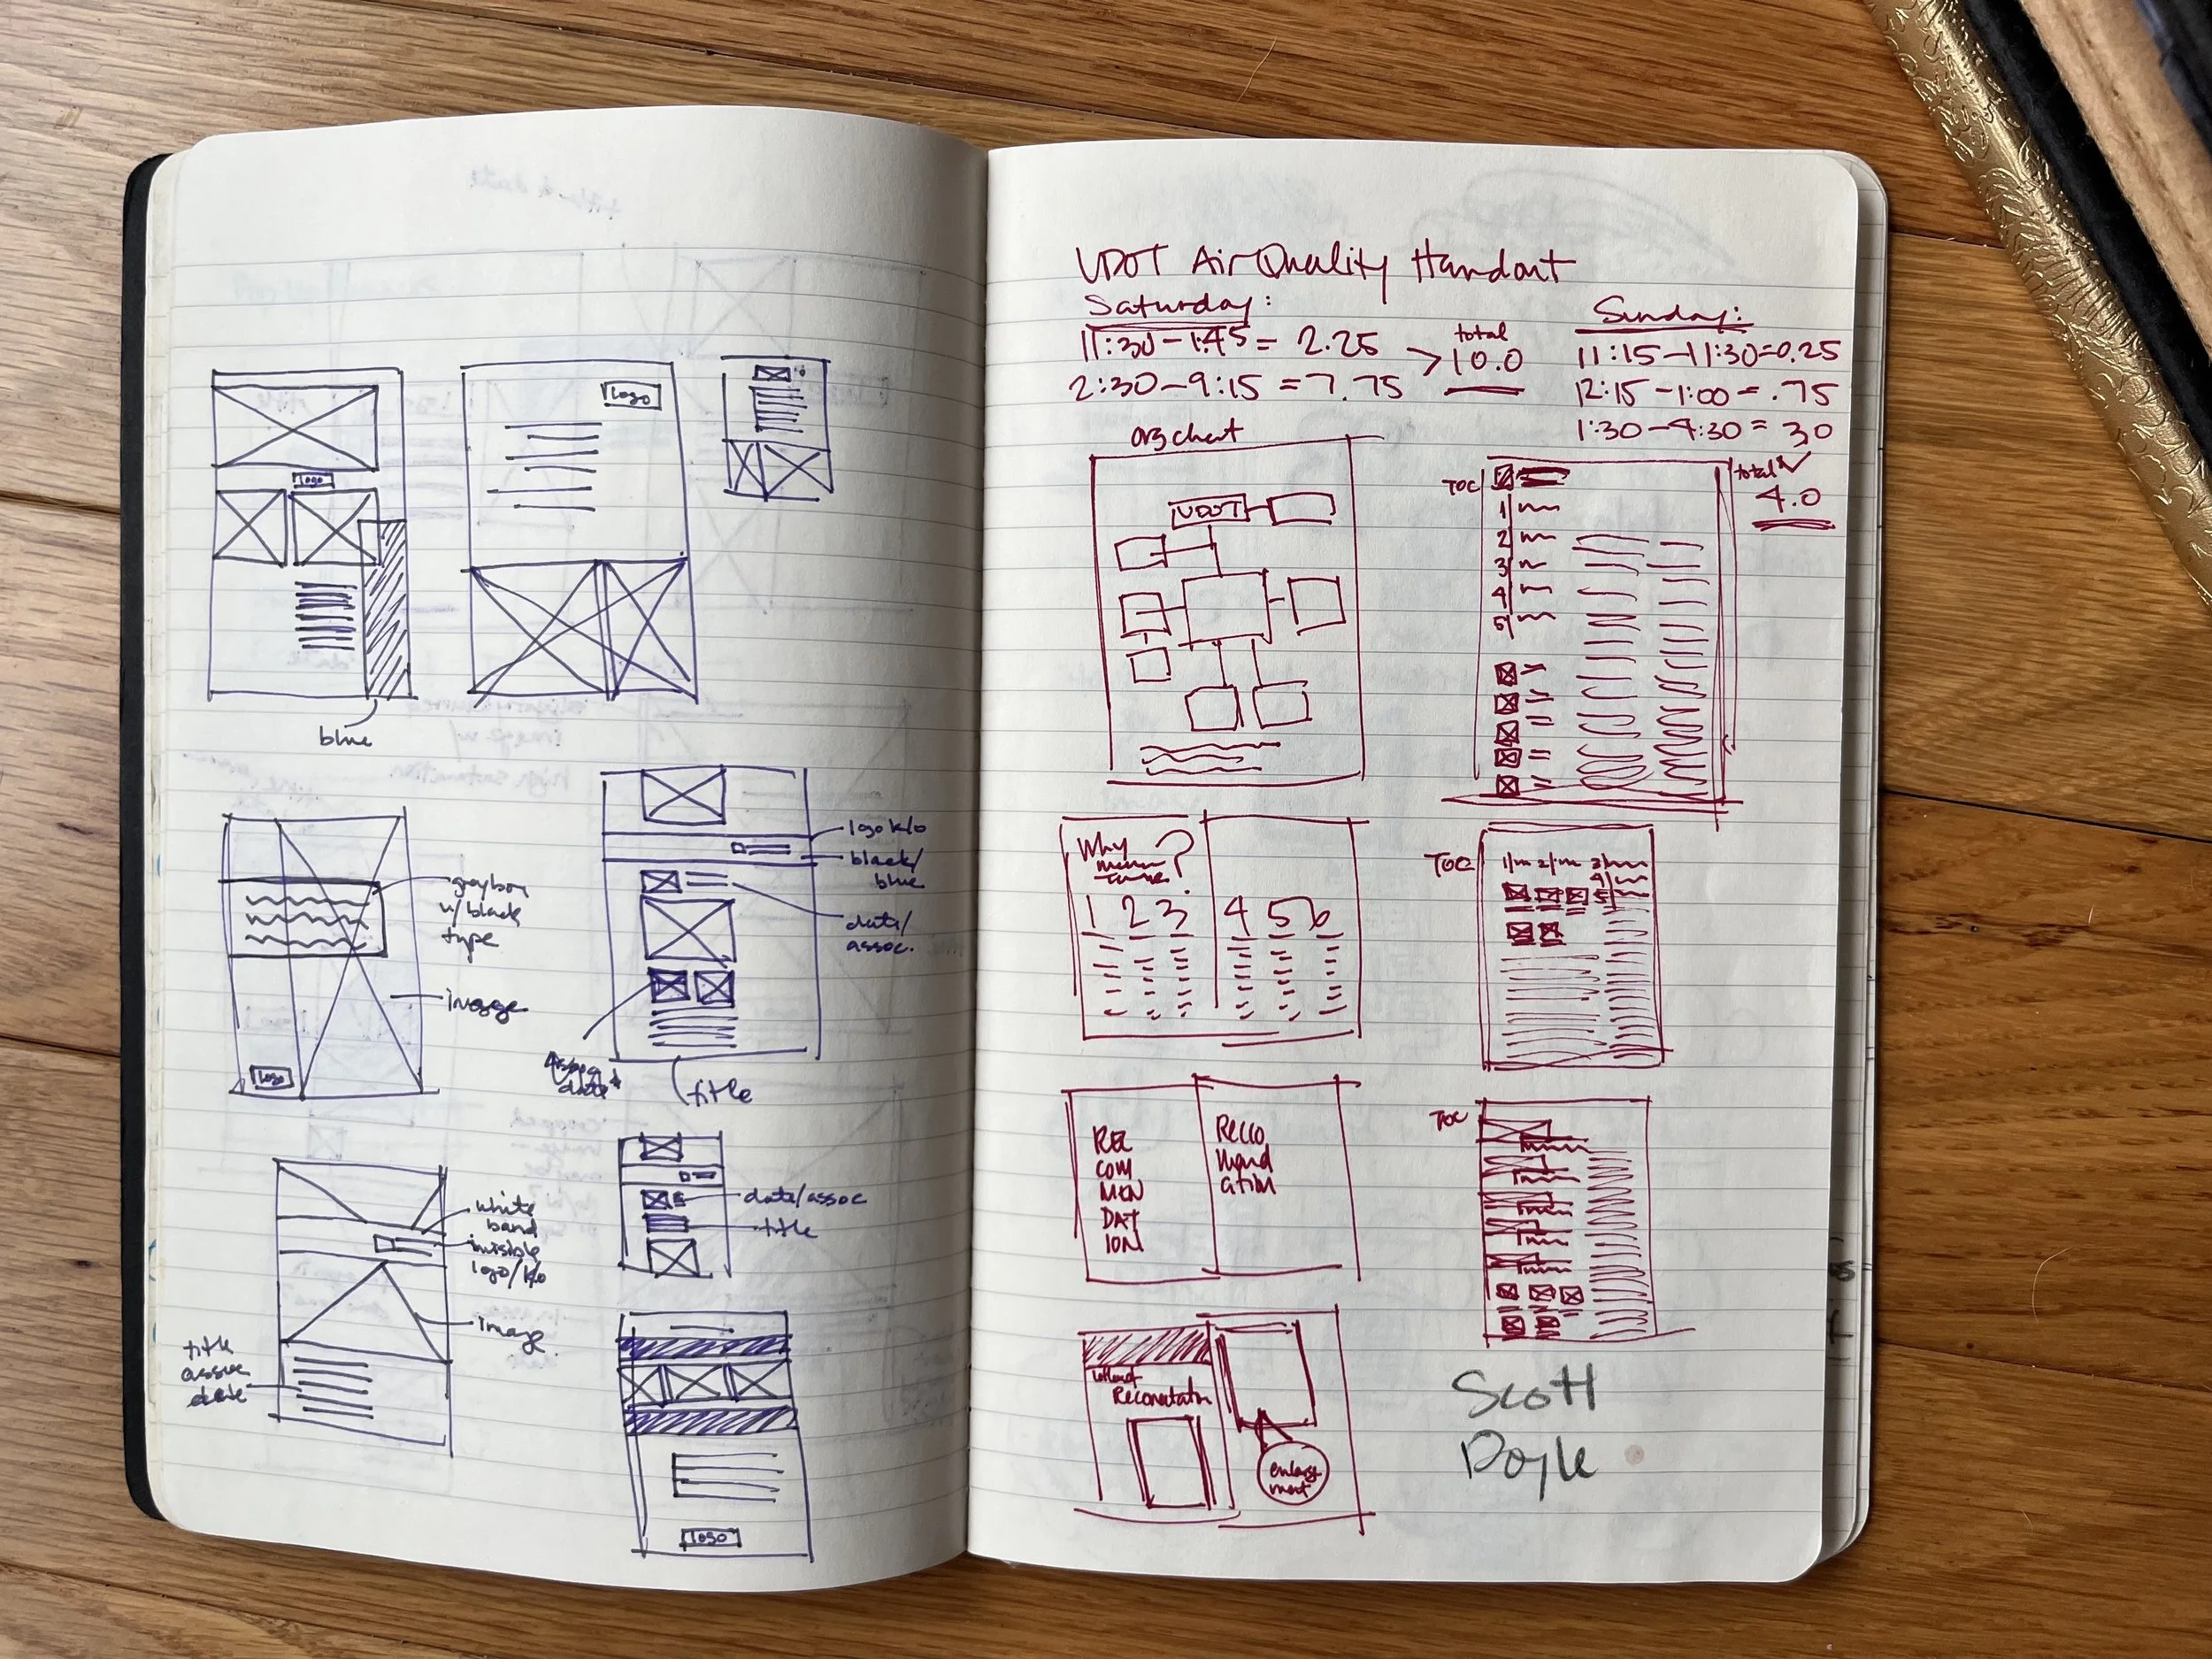 logo
logo
blue
logo k/o
black/
blue
date/
assoc.
gray box
w/ black
type
image
logo
Assoc
date
title
white
band
invisible
logo/ko
image
title
assoc
date
date/assoc
title
logo
UDOT Air Quality Handout
Saturday:
11:30 – 1:45 = 2.25
2:30 – 9:15 = 7.75
> total
10.0
Sunday:
11:15 – 11:30 = 0.25
12:15 – 1:00 = .75
1:30 – 4:30 = 30
total
4.0
org chart
UDOT
TOC
1
2
3
4
5
Why
?
1 2 3 4 5 6
TOC
1/ 2/ 3/
4/
5
REC
COM
MEN
DAT
ION
Recco
mend
ation
TOC
enlarge
ment
Scott
Doyle